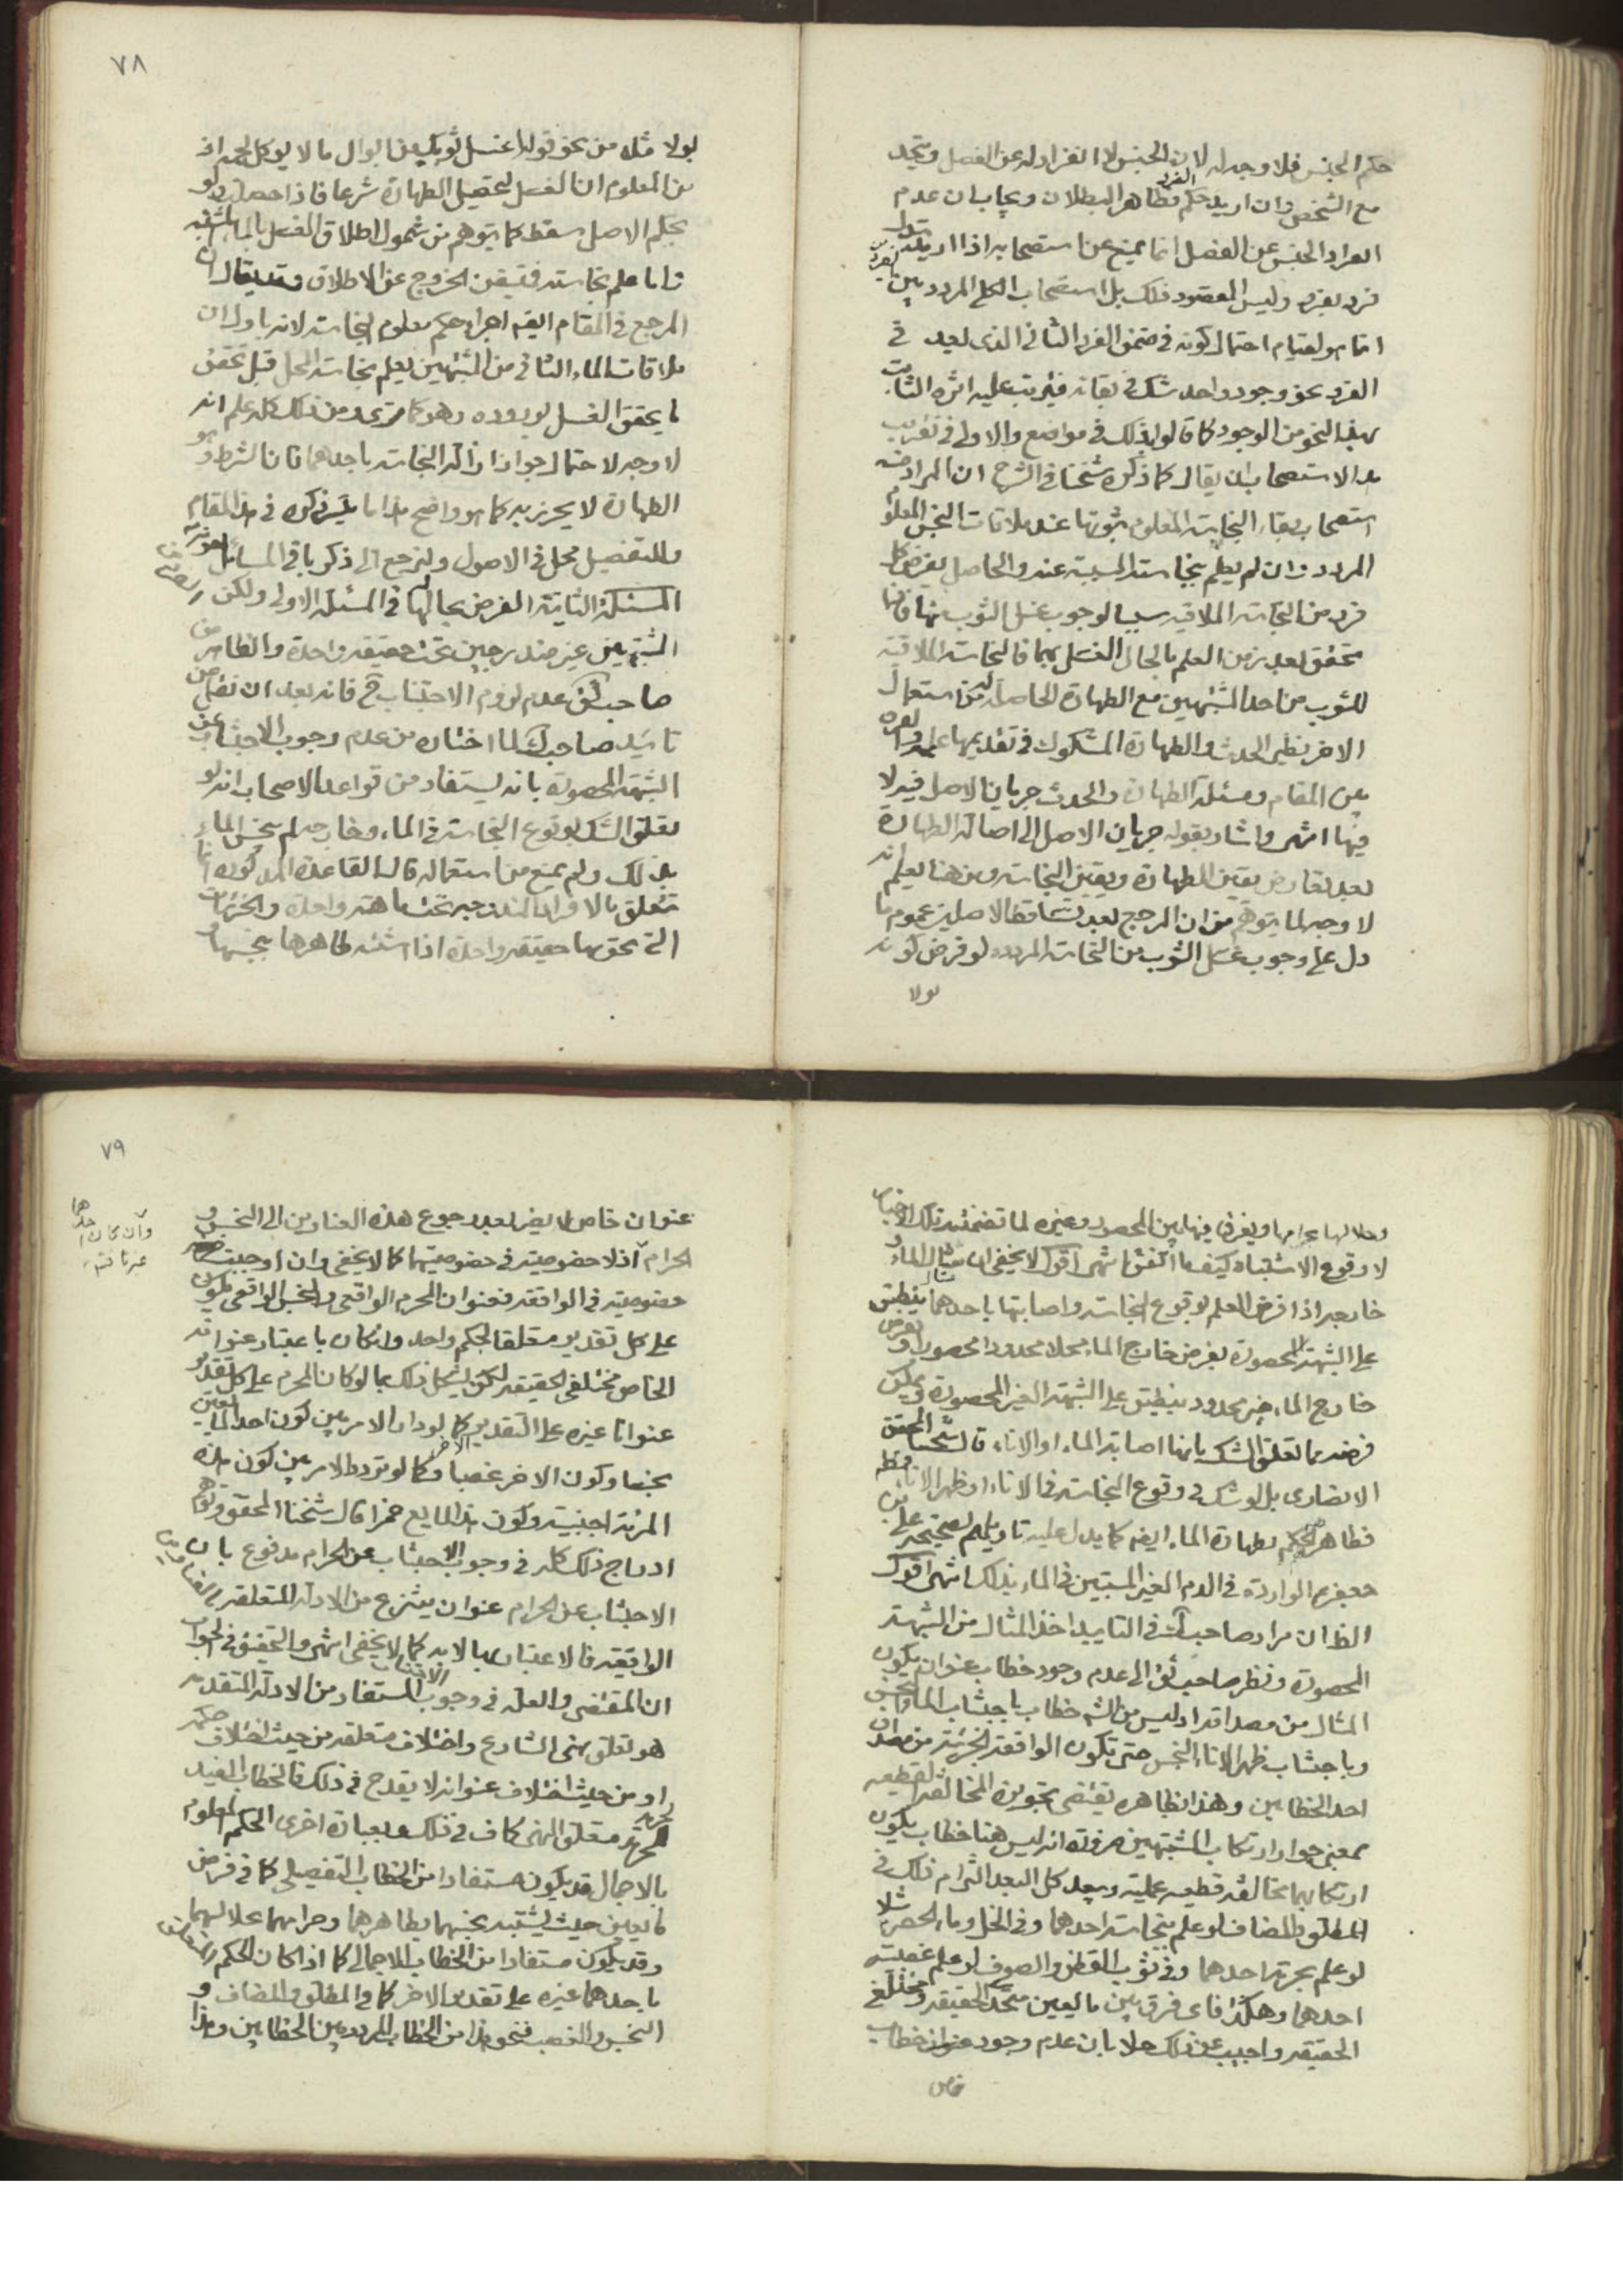 حكم الجنس فلا وجه له لان الجنس لا انفراد له عن الفصل ويتحد
مع الشخص وان اريد حكم الفرد فظاهر البطلان ويجاب بان عدم
انفراد الجنس عن الفصل انما يمنع عن استصحابه اذا اريد
فرد بفرد وليس المقصود ذلك بل استصحاب الكلي المردد بين
انما هو لقيام احتمال كونه في ضمن الفرد الثاني الذي يعد في
الفرد نحو وجود واحد شك في بقائه فيترتب عليه اثره الثابت
بهذا النحو من الوجود كما قالوا بذلك في مواضع والاولى في تقريب
هذا الاستصحاب ان يقال كما ذكره شيخنا في الشرح ان المراد منه
استصحاب بقاء النجاسة المعلوم ثبوتها عند ملاقات النجس المعلوم
المردد وان لم يعلم نجاسته السببية عنده والحاصل يفرض كل
فرد من النجاسة الملاقية سببا لوجوب غسل الثوب منها فانها
تحقق بعد زمن العلم بالحال الغسل بهما فالنجاسة الملاقية
للثوب من احد المشتبهين مع الطهارة الحاصلة له من استعمال
الاخر نظير الحدث والطهارة المشكوك في تقديمها على
بين المقام ومسئلة الطهارة والحدث جريان الاصل فيه لا
فيها انتهى واشار بقوله جريان الاصل الى اصالة الطهارة
بعد تعارض يقين الطهارة ويقين النجاسة ومن هنا يعلم انه
لا وجه لما يتوهم من ان المرجع بعد تساقط الاصلين عموم ما
دل على وجوب غسل الثوب من النجاسة المرددة لو فرض كونه
بولا
٧٨
بولا مثلا من نحو قوله اغسل ثوبك من ابوال ما لا يوكل لحمه اذ
من المعلوم ان الغسل لتحصيل الطهارة شرعا فاذا حصلت ولو
بحكم الاصل سقط كما يتوهم من شمول اطلاق الغسل بالماء المشتبه
فانا علم نجاسته فتيقن الخروج عن الاطلاق وقد يقال ان
المرجع في المقام ايضا اجراء حكم معلوم النجاسة لانه باول ان
ملاقات الماء الثاني من المشتبهين يعلم نجاسة المحل قبل تحقق
ما يحقق الغسل بوروده وهو كما ترى ومن ذلك كله علم انه
لا وجه لاحتمال جواز ازالة النجاسة باحدهما فان الشرط وهو
الطهارة لا يحرز به كما هو واضح هذا ما تيسر ذكره في هذا المقام
وللتفصيل محل في الاصول ولنرجع الى ذكر باقي المسائل
المسئلة الثانية الفرض بحالها في المسئلة الاولى ولكن
المشتبهين غير مندرجين تحت حقيقة واحدة والظاهر من
صاحب ئق عدم لزوم الاجتناب ح فانه بعد ان نقل عن
تاييد صاحب ك لما اختاره من عدم وجوب الاجتناب عن
الشبهة المحصورة بانه يستفاد من قواعد الاصحاب انه لو
تعلق الشك بوقوع النجاسة في الماء وخارجه لم ينجس الماء
بذلك ولم يمنع من استعماله قال القاعدة المذكورة انما
تتعلق بالافراد المندرجة تحت ماهية واحدة والجزئيات
التي تحويها حقيقة واحدة اذا اشتبه طاهرها بنجسها
وحلالها بحرامها ويفرق فيها بين المحصور وغيره لما تضمنته تلك الاخبار
لا وقوع الاشتباه كيف ما اتفق انتهى اقول لا يخفى ان مثال الماء و
خارجه اذا فرض العلم بوقوع النجاسة واصابتها باحدهما ينطبق
على الشبهة المحصورة بفرض خارج الماء محلا محدودا محصورا وبفرض
خارج الماء غير محدود ينطبق على الشبهة الغير المحصورة ويمكن
فرضه بما تعلق الشك بانها اصابة الماء او الاناء قال شيخنا المحقق
الانصاري بل لو شك في وقوع النجاسة في الاناء او ظهر الاناء
فظاهرهم الحكم بطهارة الماء ايضا كما يدل عليه تاويلهم لصحيحة علي بن
جعفر ع الواردة في الدم الغير المستبين في الماء بذلك انتهى اقول
الظ ان مراد صاحب ك في التاييد اخذ المثال من الشبهة
المحصورة ونظر صاحب ئق الى عدم وجود خطاب بعنوان يكون
المثال من مصداقه اذ ليس من الشرع خطاب باجتناب الماء النجس
وباجتناب ظهر الاناء النجس حتى تكون الواقعة الجزئية من مصداق
احد الخطابين وهذا بظاهره يقتضي تجويزه المخالفة القطعية
بمعنى جواز ارتكاب المشتبهين ضرورة انه ليس هنا خطاب يكون
ارتكابهما مخالفة قطعية عملية ويبعد كل البعد التزام ذلك في
المطلق والمضاف لو علم بنجاسة احدهما وفي الخل وماء الحصرم مثلا
لو علم بحرمة احدهما وفي ثوب القطن والصوف لو علم غصبية
احدهما وهكذا فاي فرق بين ما يعين متحد الحقيقة ومختلفي
الحقيقة واجيب عن ذلك حلا بان عدم وجود عنوان خطاب
خاص
٧٩
عنوان خاص لا يضر بعد رجوع هذه العناوين الى النجس و
الحرام اذ لا خصوصية في خصوصيتهما كما لا يخفى وان اوجبت
خصوصية في الواقعة فعنوان المحرم الواقعي والنجس الواقعي يكون
على كل تقدير متعلقا لحكم واحد وان كان باعتبار عنوانه
الخاص مختلفي الحقيقة لكن يشكل ذلك بما لو كان المحرم على كل تقدير
عنوانا غيره على التقدير الاخر كما لو دار الامر بين كون احد المايعين
نجسا وكون الاخر غصبا وكما لو تردد الامر بين كون هذه
المرئة اجنبية وكون هذا المايع خمرا قال شيخنا المحقق وتوهم
ادراج ذلك كله في وجوب الاجتناب عن الحرام مدفوع بان
الاجتناب عن الحرام عنوان ينتزع من الادلة المتعلقة
الواقعية فالاعتبار بها لا به كما لا يخفى انتهى والتحقيق في الجواب
ان المقتضى والعلة في وجوب الاجتناب المستفاد من الادلة المتقدمة
هو تعلق نهي الشارع واختلاف متعلقه من حيث اختلاف
او من حيث اختلاف عنوانه لا يقدح في ذلك فالخطاب المفيد
لحرمة متعلق النهي كاف في ذلك وبعبارة اخرى الحكم المعلوم
بالاجمال قد يكون مستفادا من الخطاب التفصيلي كما في فرض
مايعين حيث يشتبه نجسهما بطاهرهما وحرامهما بحلالهما
وقد يكون مستفادا من الخطاب الاجمالي كما اذا كان الحكم
باحدهما غيره على تقدير الاخر كما في المطلق والمضاف و
النجس والغصب فنحو هذا من الخطاب المردد بين الخطابين وهذا